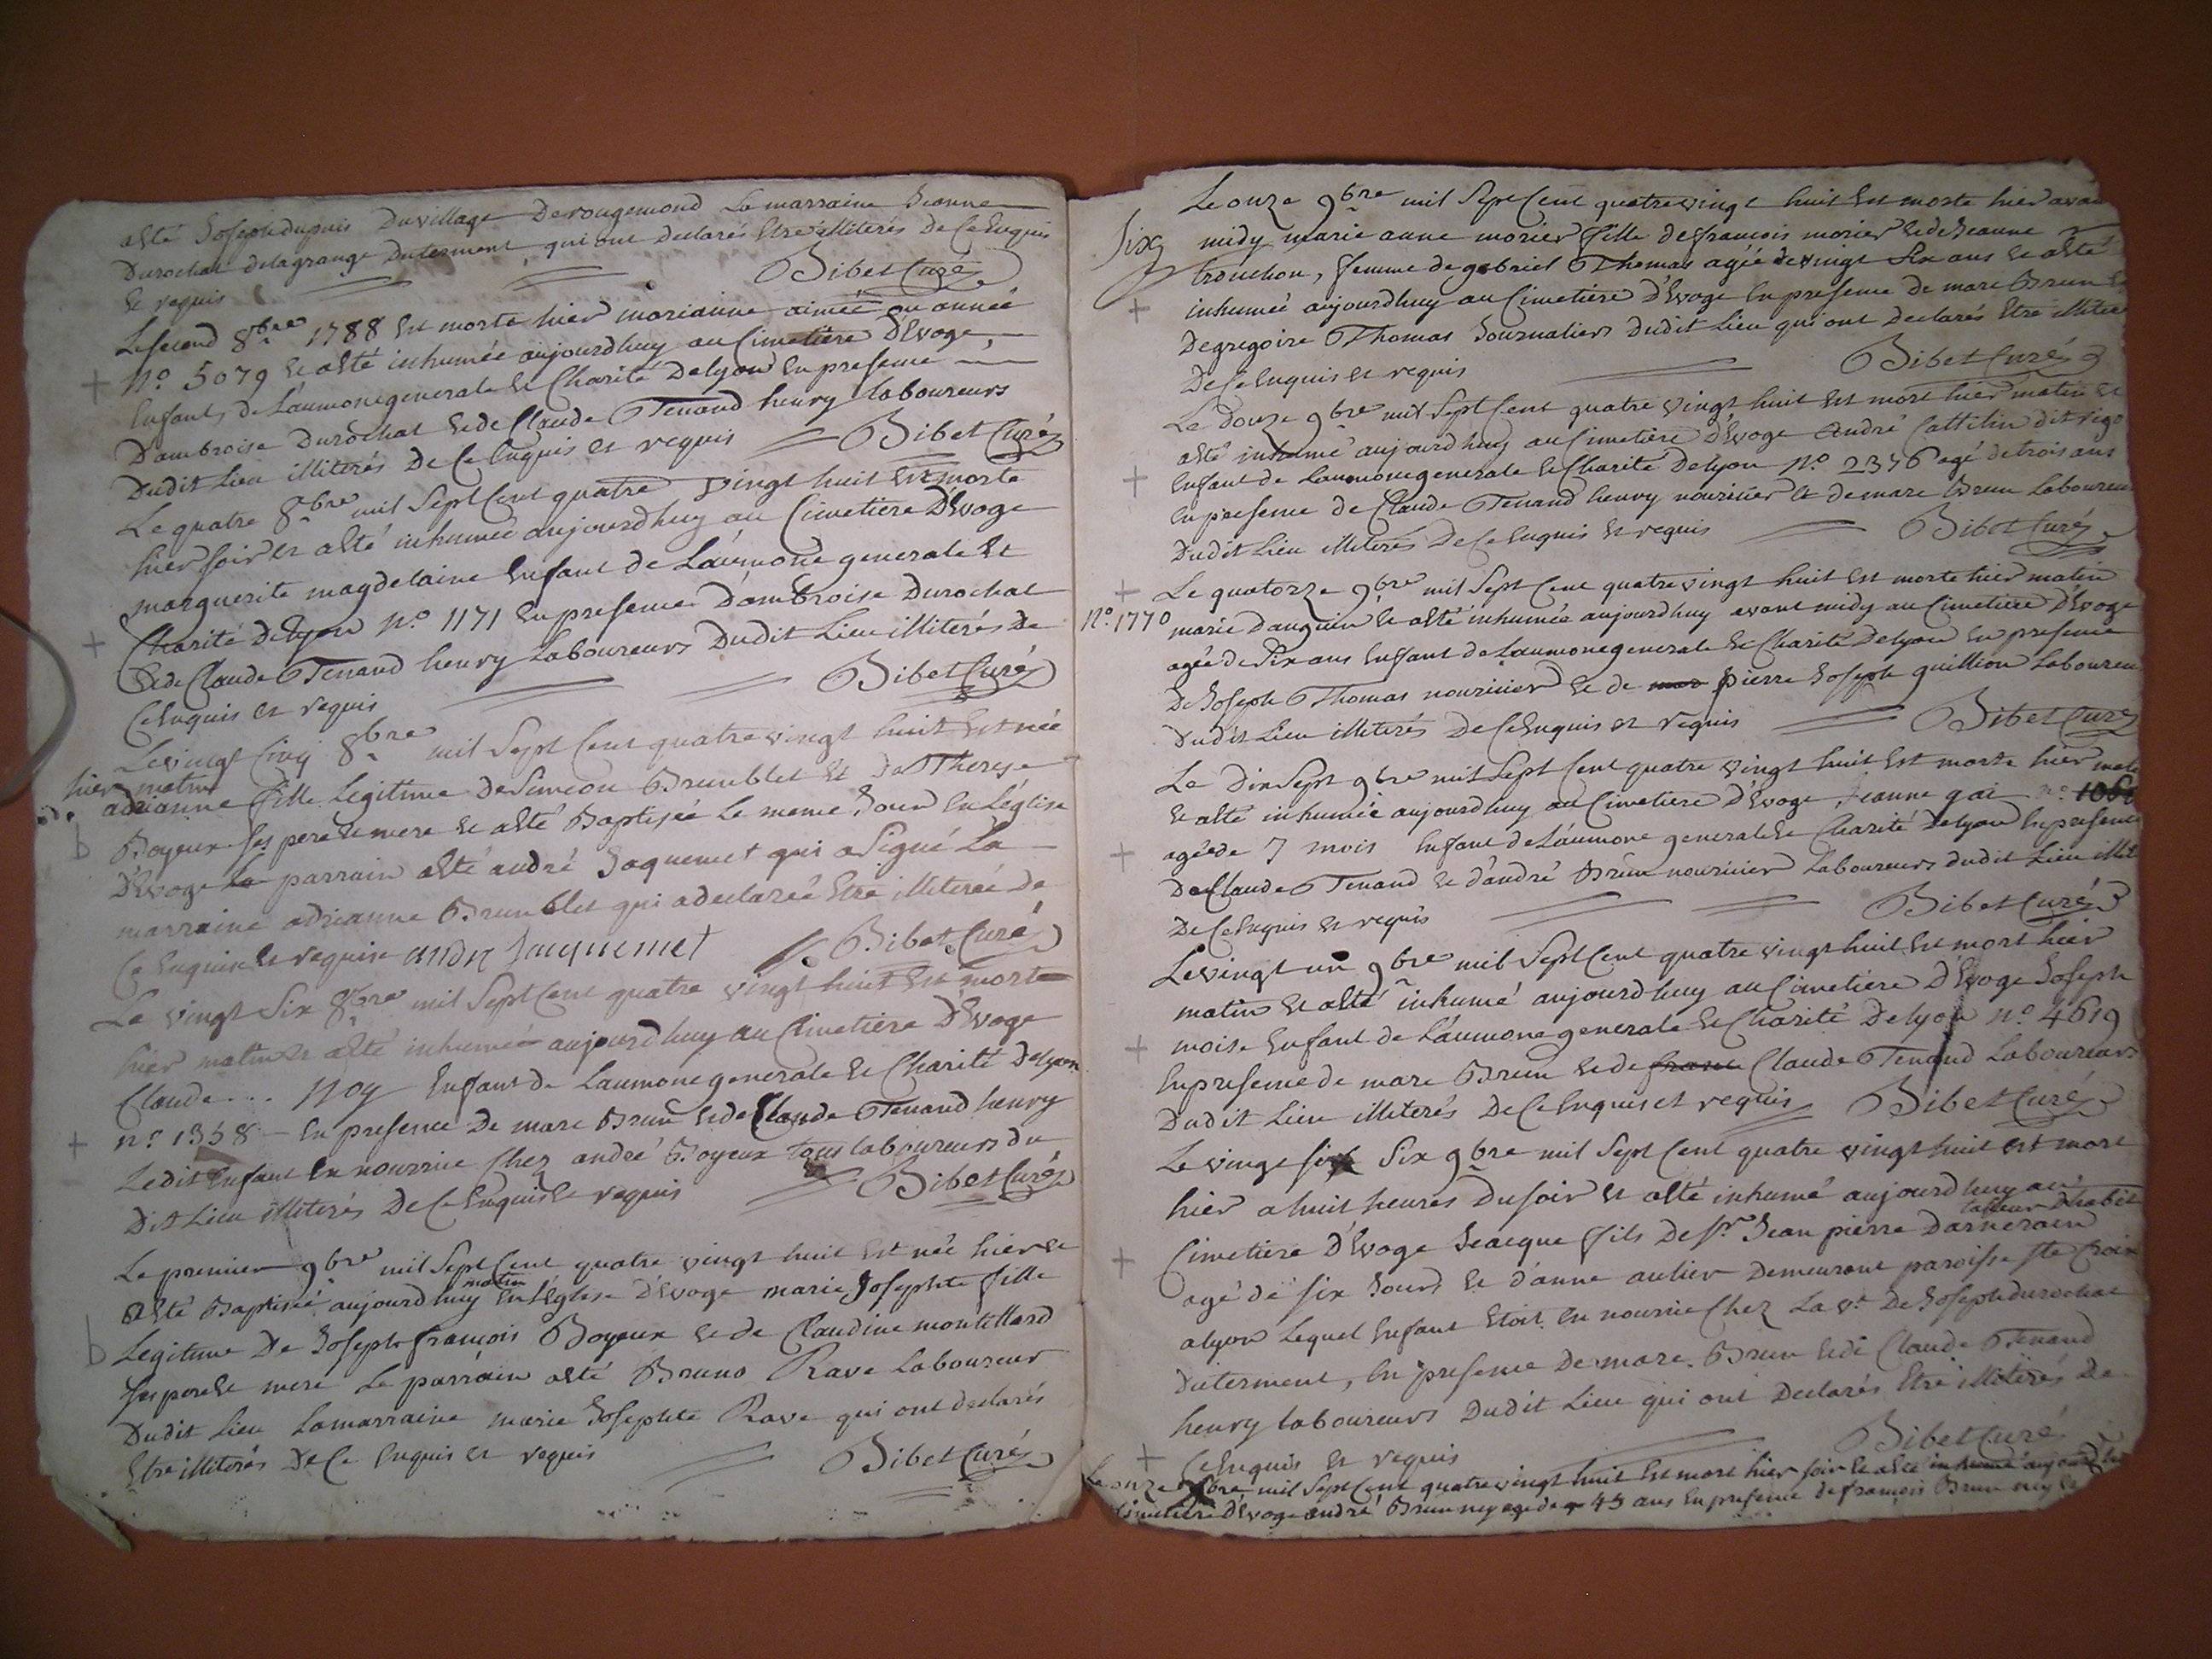 alté Joseph dupuis Du village De rougemond La marraine Jeanne
Durochat delagrange Duterment, qui ont Declarés Etre illiterés de Ce Enquis
Et requis
Bibet Curé
Le second 8bre 1788 Est morte hier marianne aimée ou année
N.o 5079 Et alté inhumée aujourdhuy au Cimetière D'Evoge,
Enfant, de L'aumone generale Et Charité De lyon En presence
D'ambroise Durochat Et de Claude Tenand henry laboureurs
Dudit Lieu illiterés De Ce Enquis et requis Bibet Curé
Le quatre 8bre mil Sept Cent quatre vingt huit Est morte
hier soir et alté inhumée aujourdhuy au Cimetiere D'Evoge
marguerite magdelaine Enfant de L'aumone generale Et
Charité De lyon N.o 1171 En presence D'ambroise Durochat
Et de Claude Tenand henry Laboureurs Dudit Lieu illiterés De
Ce Enquis et requis Bibet Curé
Le vingt Cinq 8bre mil Sept Cent quatre vingt huit Est née
hier matin
adrianne fille Legitime De Simeon Brunblet Et De Therese
Boyeux Ses pere Et mere Et alté Baptisée Le meme Jour En L'église
D'Evoge Le parrain alté andré Jaquemet qui a Signé La
marraine adrianne Brunblet qui a declarée Etre illiterée de
Ce Enquise Et requise andre Jaquemet Bibet Curé
Le vingt Six 8bre mil Sept Cent quatre vingt huit Est morte
hier matin et alté inhumée aujourdhuy au Cimetiere D'Evoge
Claude... Noy Enfant de Laumone generale Et Charité De lyon
n.o 1358 – En presence De marc Brun Et de Claude Tenand henry
Ledit Enfant En nourrice Chez andré Boyeux tous laboureurs du
Dit Lieu illiterés De Ce Enquis Et requis Bibet Curé
Le premier 9bre mil Sept Cent quatre vingt huit Est née hier Et
matin
alté Baptisée aujourdhuy En L'église D'Evoge marie Josephte fille
b Legitime De Joseph françois Boyeux et de Claudine montillard
Ses pere Et mere Le parrain alté Bruno Rave Laboureur
Dudit Lieu La marraine marie Josephte Rave qui ont declarés
Etre illiterés De Ce Enquis et requis Bibet Curé
Le onze 9bre mil Sept Cent quatre vingt huit Est morte hier
Six midy marie anne morier fille de francois morier Et de Jeanne
trouchon, femme de gabriel Thomas agée de vingt Six ans Et alté
inhumée aujourdhuy au Cimetière D'Evoge En presence de marc Brun
De gregoire Thomas Journaliers dudit Lieu qui ont Declarés Etre
De Ce Enquis et requis Bibet Curé
Le Douze 9bre mil Sept Cent quatre vingt huit Est mort hier matin et
alté inhumé aujourdhuy au Cimetière D'Evoge andré Cattilin dit
Enfant de Laumone generale Et Charité De lyon N.o 2376 agé de trois ans
En presence de Claude Tenand henry nouricier et de marc Brun
Dudit Lieu illiterés De Ce Enquis et requis Bibet Curé
Le quatorze 9bre mil Sept Cent quatre vingt huit Est morte hier matin
N.o 1770 marie Dauguin Et alté inhumée aujourdhuy avant midy au Cimetiere D'Evoge
agée de Six ans Enfant de Laumone generale Et Charité De lyon En presence
De Joseph Thomas nouricier Et de pierre Joseph guillion
Dudit Lieu illiterés De Ce Enquis et requis Bibet Curé
Le Dix Sept 9bre mil Sept Cent quatre vingt huit Est morte hier
Et alté inhumée aujourdhuy au Cimetiere D'Evoge, Jeanne gai n.o
agée de 7 mois Enfant de L'aumone generale Et Charité De lyon En presence
De Claude Tenand Et d'andré Brun nouricier Laboureurs dudit Lieu
De Ce Enquis et requis Bibet Curé
Le vingt un 9bre mil Sept Cent quatre vingt huit Est mort hier
matin Et alté inhumé aujourdhuy au Cimetiere D'Evoge Joseph
moise Enfant de L'aumone generale Et Charité De lyon N.o 4619
En presence de marc Brun Et de Claude Tenand Laboureurs
Dudit Lieu illiterés De Ce Enquis et requis Bibet Curé
Le vingt Six 9bre mil Sept Cent quatre vingt huit Est mort
hier a huit heures Du soir et alté inhumé aujourdhuy au
tailleur D'habit
Cimetiere D'Evoge Jeacque fils De Sr Jean pierre
agé de six Jours Et d'anne autier Demeurant paroisse Ste Croix
a lyon Lequel Enfant Etoit En nourrice Chez La ve De Joseph durochat
Duterment, En presence De marc Brun Et de Claude Tenand
henry laboureurs Dudit Lieu qui ont Declarés Etre illiterés De
Ce Enquis et requis Bibet Curé
Le onze mil Sept Cent quatre vingt huit Est mort hier soir Et alté inhumé
Cimetière D'Evoge andré Brun ney agé de 45 ans En presence de françois Brun ney